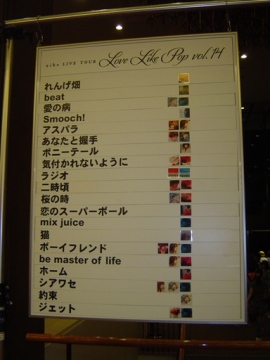 aiko LIVE TOUR Love Like Pop vol.14
れんげ畑
beat
愛の病
Smooch!
アスパラ
あなたと握手
ポニーテール
気付かれないように
ラジオ
二時頃
桜の時
恋のスーパーボール
mix juice
猫
ボーイフレンド
be master of life
ホーム
シアワセ
約束
ジェット